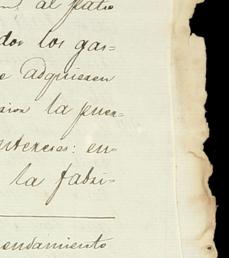 al patio
dor los gas=
adquiesen
sion la puer-
ntencias: en-
la fabri-
endamiento